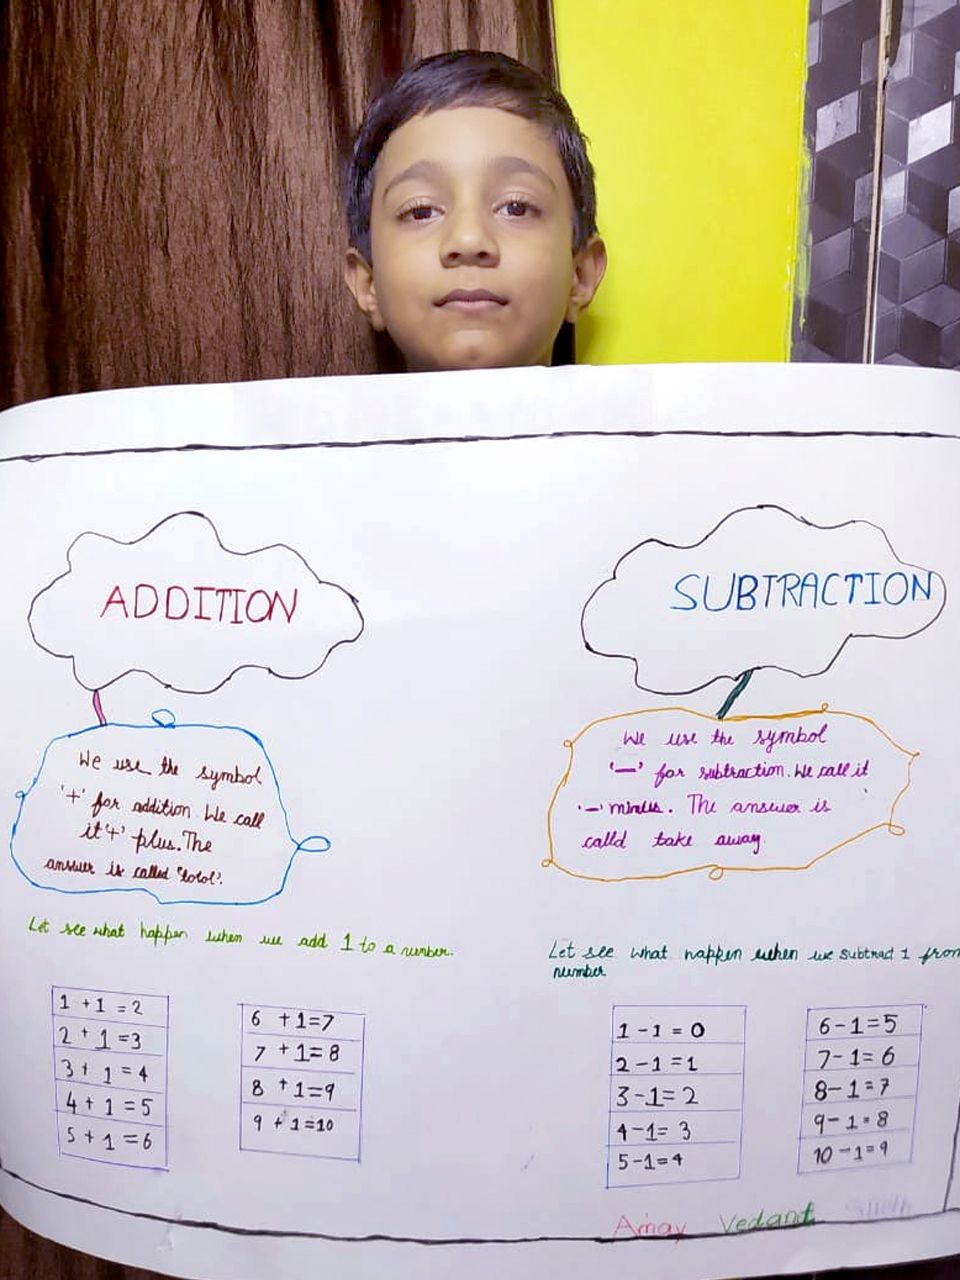 ADDITION
We use the symbol
'+' for addition. We call
it '+' plus. The
answer is called 'totol'.
Let see what happen when we add 1 to a number.
1 + 1 = 2
2 + 1 = 3
3 + 1 = 4
4 + 1 = 5
5 + 1 = 6
6 + 1 = 7
7 + 1 = 8
8 + 1 = 9
9 + 1 = 10
SUBTRACTION
We use the symbol
'—' for subtraction. We call it
'—' minus. The answer is
calld take away.
Let see what happen when we subtract 1 from
number
1 - 1 = 0
2 - 1 = 1
3 - 1 = 2
4 - 1 = 3
5 - 1 = 4
6 - 1 = 5
7 - 1 = 6
8 - 1 = 7
9 - 1 = 8
10 - 1 = 9
Amay Vedant